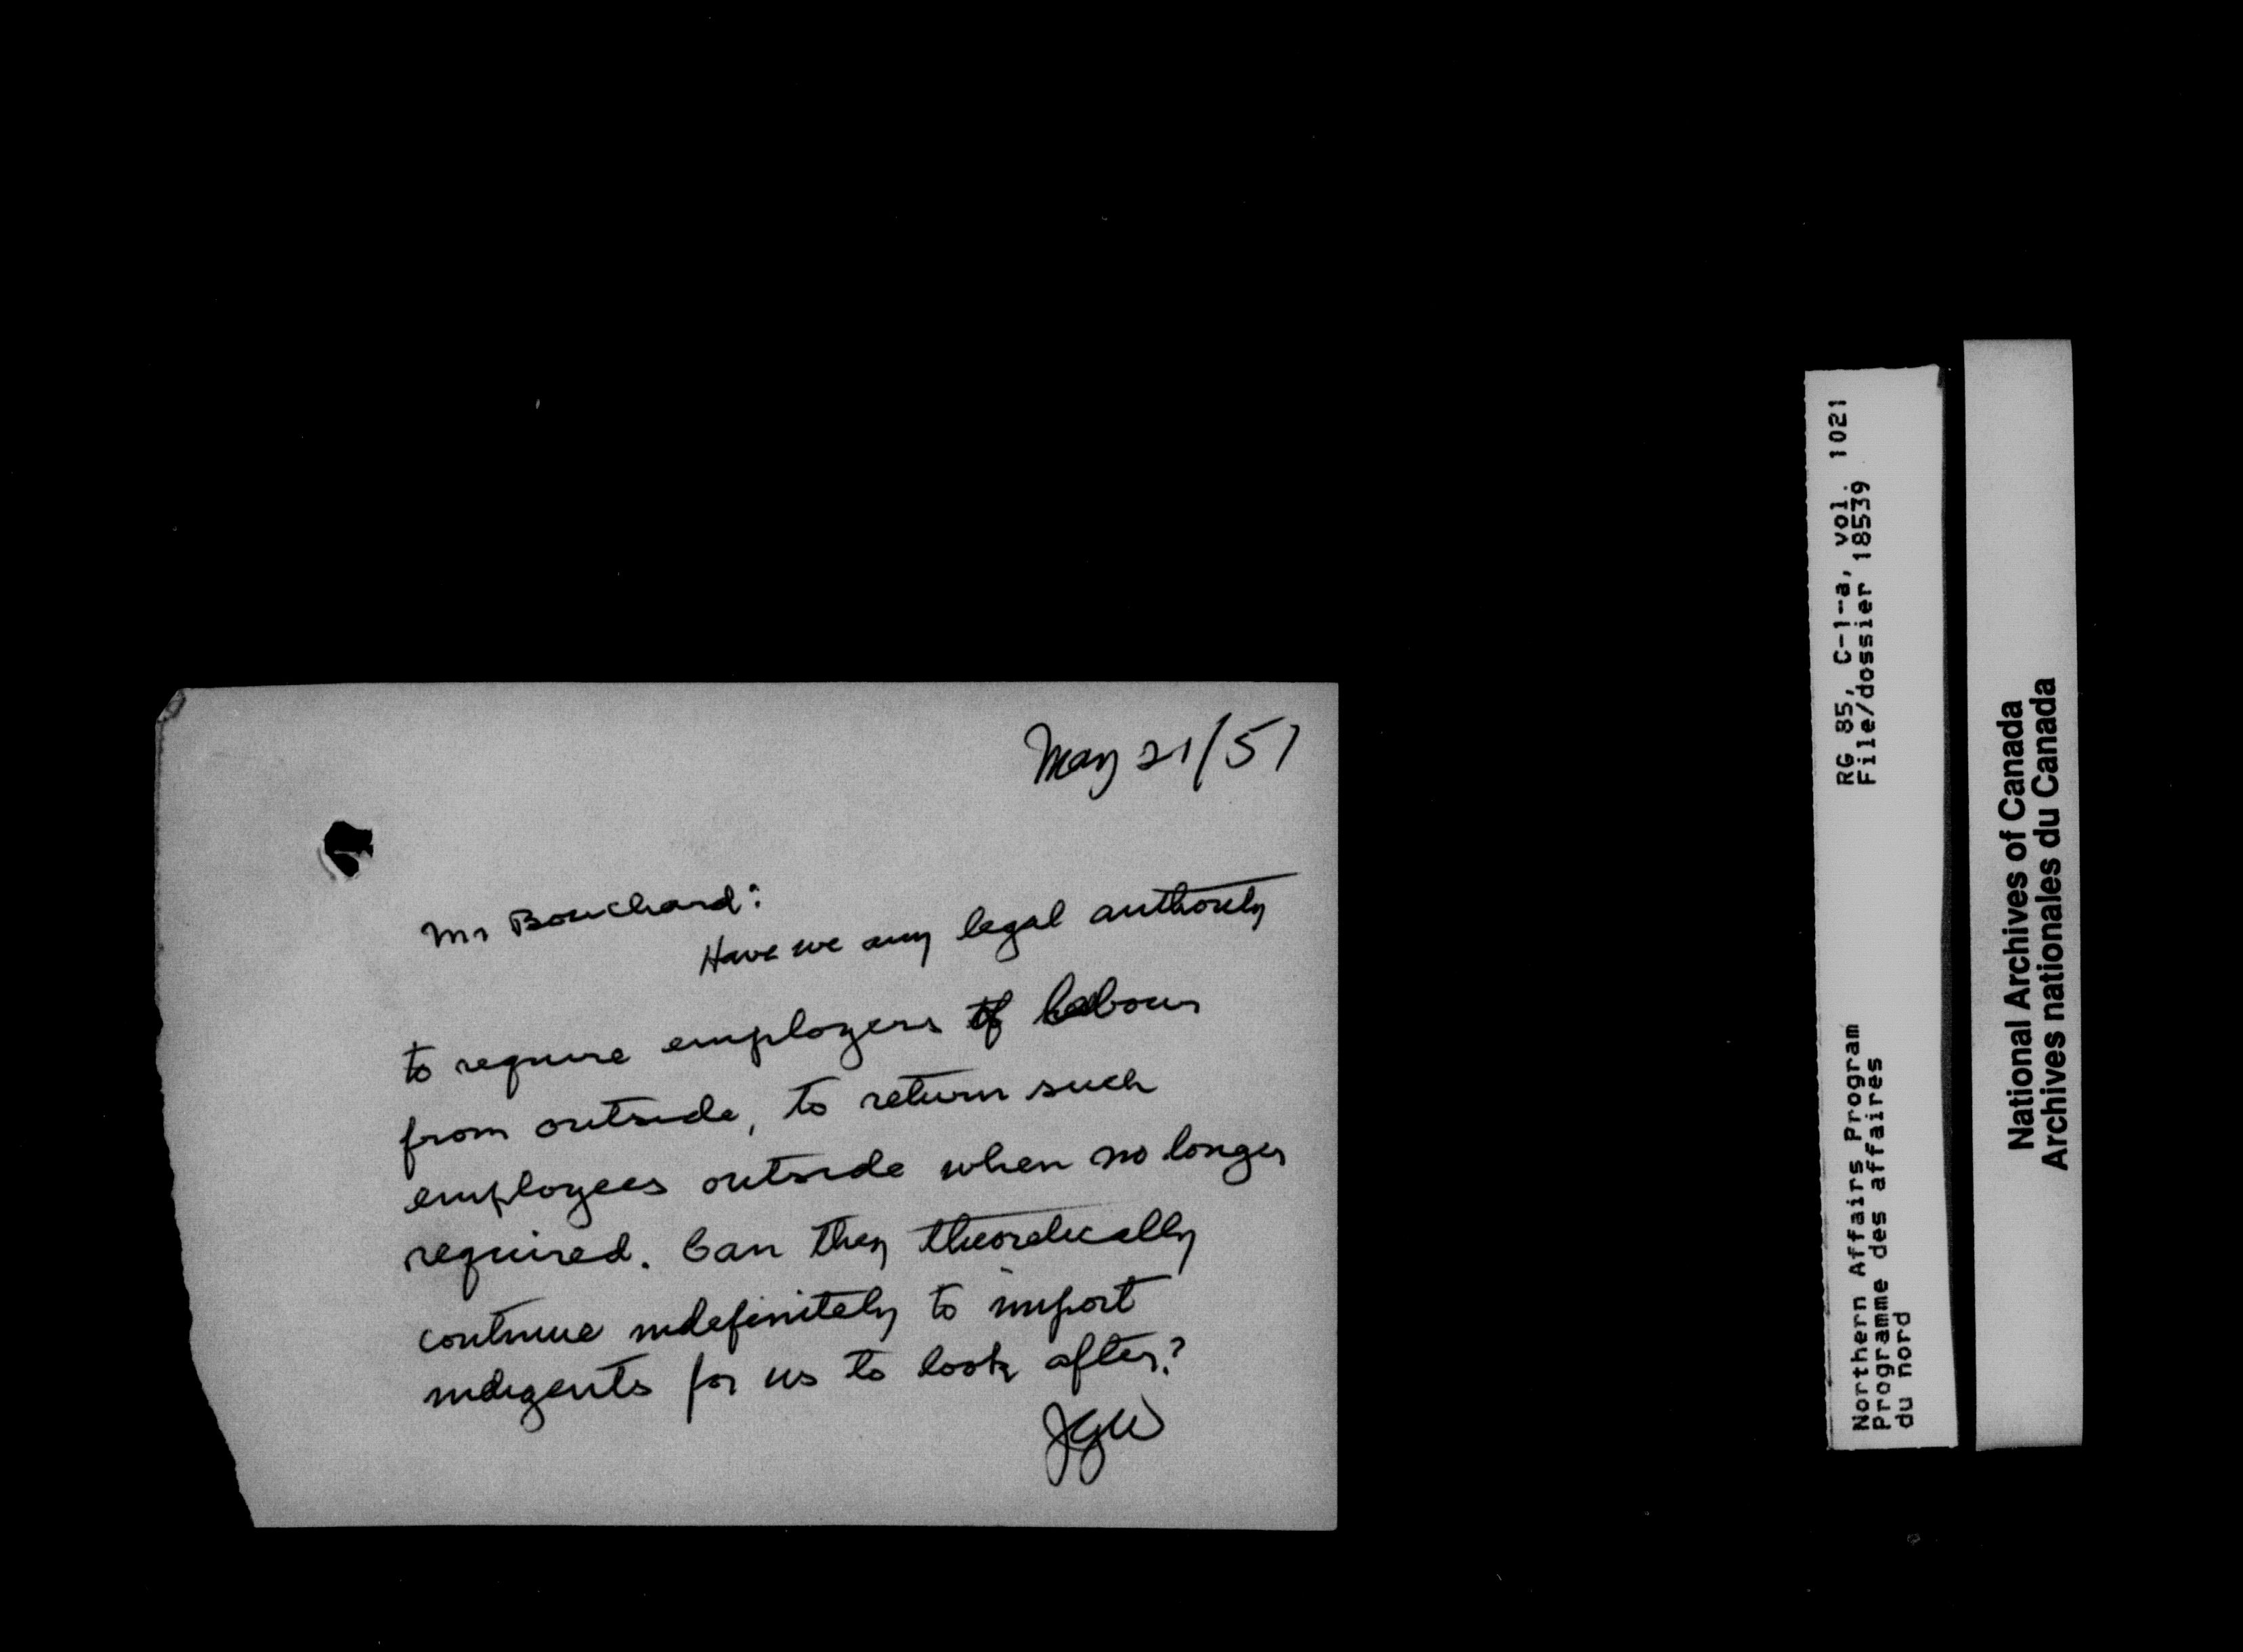 May 21/51
Mr Bouchard:
Have we any legal authority
to require employers of labour
from outside, to return such
employees outside when no longer
required. Can they theoretically
continue indefinitely to import
indigents for us to look after?
JGW
RG 85, C-1-a, vol. 1021
File/dossier 18539
Northern Affairs Program
Programme des affaires
du nord
National Archives of Canada
Archives nationales du Canada